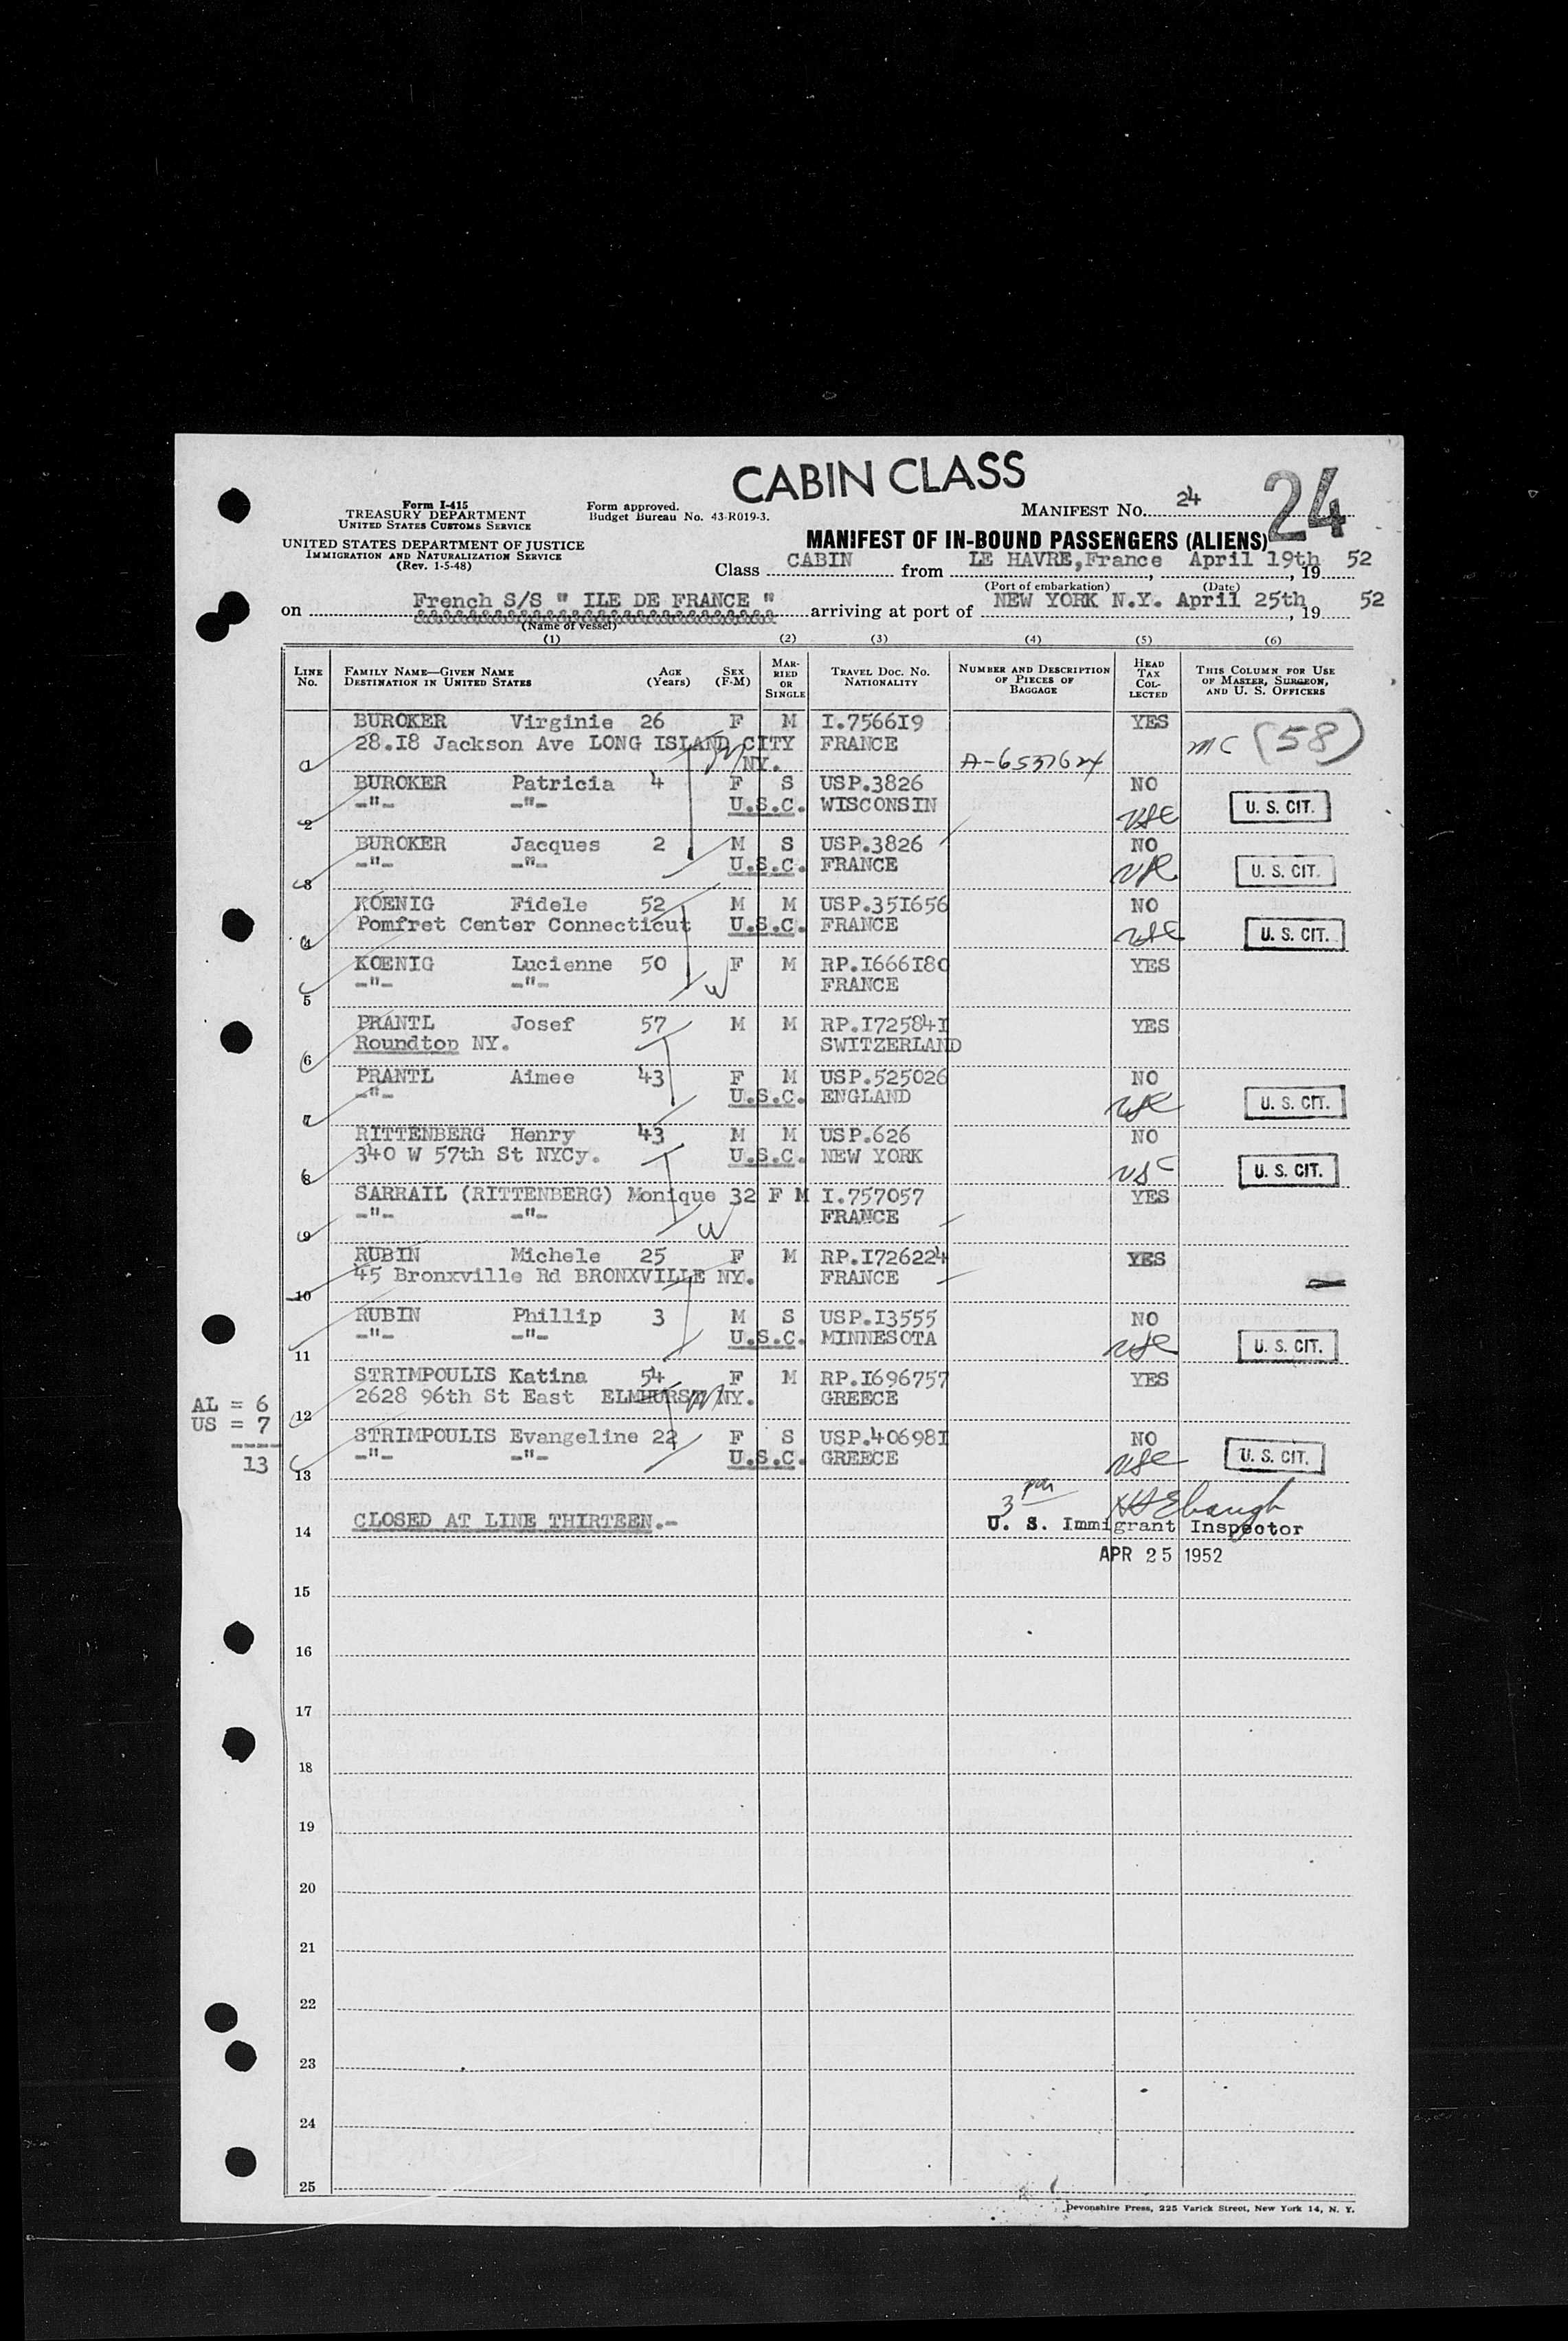 CABIN CLASS
Form I-415
TREASURY DEPARTMENT
UNITED STATES CUSTOMS SERVICE
UNITED STATES DEPARTMENT OF JUSTICE
IMMIGRATION AND NATURALIZATION SERVICE
(Rev. 1-5-48)
Form approved.
Budget Bureau No. 43-R019-3.
MANIFEST NO. 24
24
MANIFEST OF IN-BOUND PASSENGERS (ALIENS)
Class CABIN from LE HAVRE, France, April 19th, 19 52
(Port of embarkation) (Date)
on French S/S " ILE DE FRANCE " arriving at port of NEW YORK N.Y. April 25th, 19 52
(Name of vessel)
(1) (2) (3) (4) (5) (6)
LINE NO. FAMILY NAME—GIVEN NAME DESTINATION IN UNITED STATES AGE (Years) SEX (F-M) MARRIED OR SINGLE TRAVEL DOC. NO. NATIONALITY NUMBER AND DESCRIPTION OF PIECES OF BAGGAGE HEAD TAX COLLECTED THIS COLUMN FOR USE OF MASTER, SURGEON, AND U. S. OFFICERS
BUROKER Virginie 26 F M I.756619 YES
28.I8 Jackson Ave LONG ISLAND CITY FRANCE MC (58)
NY. A-6537624
BUROKER Patricia 4 F S USP.3826 NO
-"- -"- U.S.C. WISCONSIN USC U. S. CIT.
2
BUROKER Jacques 2 M S USP.3826 NO
-"- -"- U.S.C. FRANCE U. S. CIT.
3
KOENIG Fidele 52 M M USP.351656 NO
Pomfret Center Connecticut U.S.C. FRANCE USC U. S. CIT.
4
KOENIG Lucienne 50 F M RP.I666I80 YES
-"- -"- W FRANCE
5
PRANTL Josef 57 M M RP.I72584I YES
Roundtop NY. SWITZERLAND
6
PRANTL Aimee 43 F M USP.525026 NO
-"- U.S.C. ENGLAND USC U. S. CIT.
7
RITTENBERG Henry 43 M M USP.626 NO
340 W 57th St NYCy. U.S.C. NEW YORK USC U. S. CIT.
8
SARRAIL (RITTENBERG) Monique 32 F M I.757057 YES
-"- -"- W FRANCE
9
RUBIN Michele 25 F M RP.I726224 YES
45 Bronxville Rd BRONXVILLE NY. FRANCE
10
RUBIN Phillip 3 M S USP.I3555 NO
-"- -"- U.S.C. MINNESOTA USC U. S. CIT.
11
STRIMPOULIS Katina 54 F M RP.I696757 YES
2628 96th St East ELMHURST NY. GREECE
12
STRIMPOULIS Evangeline 22 F S USP.40698I NO
-"- -"- U.S.C. GREECE USC U. S. CIT.
13
AL = 6
US = 7
13
CLOSED AT LINE THIRTEEN.-
14
U. S. Immigrant Inspector
APR 25 1952
15
16
17
18
19
20
21
22
23
24
25
Devonshire Press, 225 Varick Street, New York 14, N. Y.